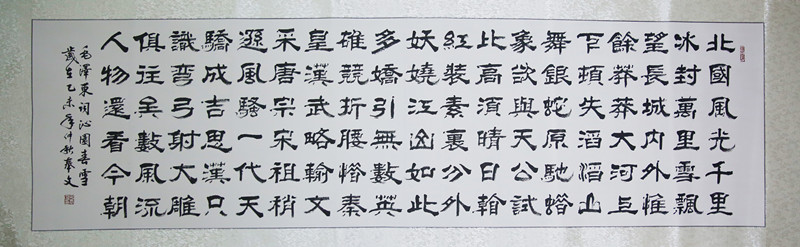 北國風光千里
冰封萬里雪飄
望長城內外惟
餘莽莽大河上
下頓失滔滔山
舞銀蛇原馳蠟
象欲與天公試
比高須晴日看
紅裝素裹分外
妖嬈江山如此
多嬌引無數英
雄競折腰惜秦
皇漢武略輸文
采唐宗宋祖稍
遜風騷一代天
驕成吉思漢只
識彎弓射大雕
俱往矣數風流
人物還看今朝
毛澤東詞沁園春雪
歲在乙未年仲秋奉文